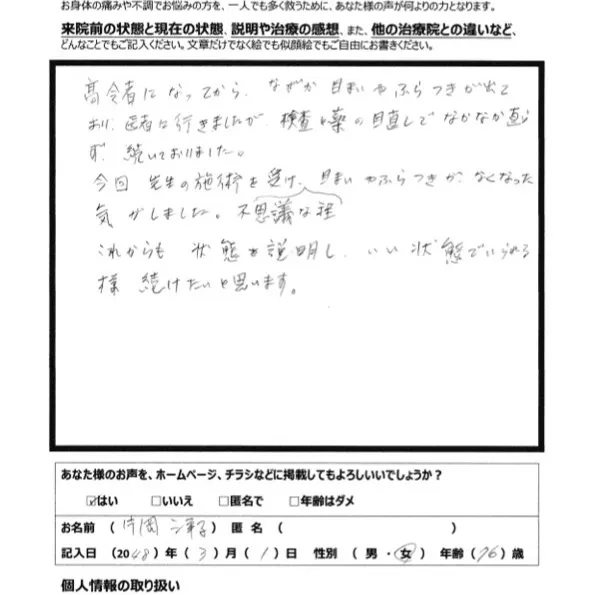 お身体の痛みや不調でお悩みの方を、一人でも多く救うために、あなた様の声が何よりの力となります。
来院前の状態と現在の状態、説明や治療の感想、また、他の治療院との違いなど、
どんなことでもご記入ください。文章だけでなく絵でも似顔絵でもご自由にお書きください。
高令者になってから、なぜか目まいやふらつきが出て
おり、医者に行きましたが、検査と薬の見直しでなかなか直ら
ず、続いておりました。
今回 先生の施術を受け、目まいやふらつきが、なくなった
気がしました。不思議な程
これからも 状態を説明し、いい状態でいられる
様 続けたいと思います。
あなた様のお声を、ホームページ、チラシなどに掲載してもよろしいいでしょうか？
☑はい □いいえ □匿名で □年齢はダメ
お名前 （片岡 ） 匿 名 （ ）
記入日 （20 ）年（3）月（1）日 性別 （男・女） 年齢（76）歳
個人情報の取り扱い